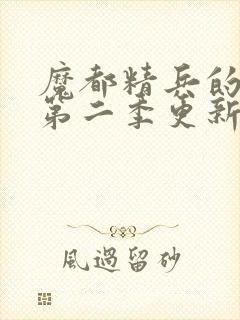 魔都精兵的
第二季更新
風過留砂